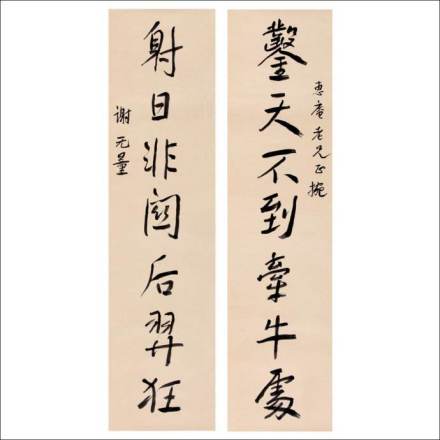 惠庵老兄正腕
鑿天不到牽牛處
射日非關后羿狂
謝无量